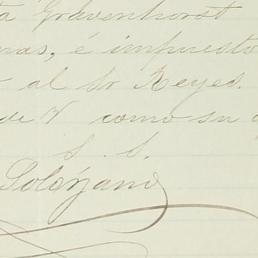 ta Gravenhorst
mas, é impuesto
al Sr Reyes.
de V como su
S. S.
Solórzano